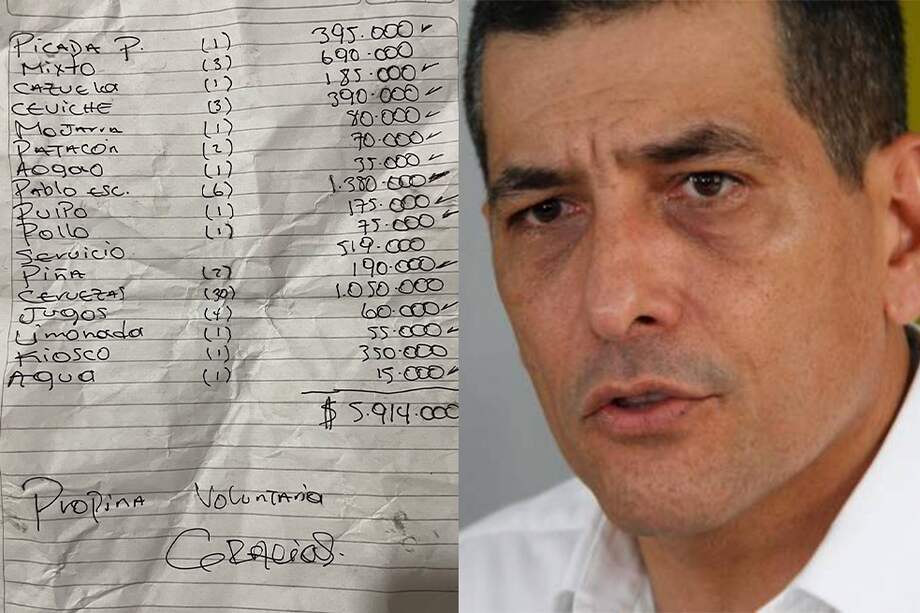 PICADA P. (1) 395.000 ✓
Mixto (3) 690.000
CAZUELA (1) 185.000 ✓
CEVICHE (3) 390.000 ✓
Mojarra (1) 80.000 ✓
PATACÓN (2) 70.000 ✓
AOGAO (1) 35.000 ✓
Pablo esc. (6) 1.380.000 ✓
Pulpo (1) 175.000 ✓
Pollo (1) 75.000 ✓
Servicio 519.000
Piña (2) 190.000 ✓
CERVEZAS (30) 1.050.000
Jugos (4) 60.000 ✓
Limonada (1) 55.000 ✓
Kiosco (1) 350.000
AGUA (1) 15.000 ✓
$ 5.914.000
Propina Voluntaria
Gracias.